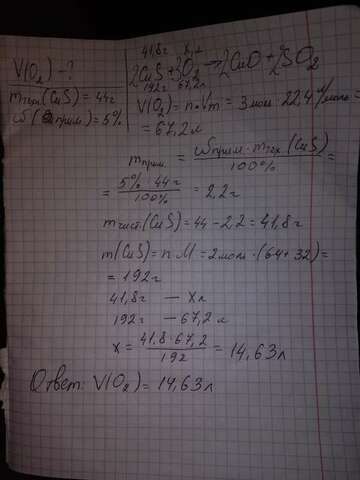 V(O₂) - ?
mтех.(CuS) = 44г
ω(прим.) = 5%
41,8г х л
2CuS + 3O₂ → 2CuO + 2SO₂
192г 67,2л
V(O₂) = n · Vm = 3моль · 22,4 л/моль =
= 67,2 л
mприм. = ωприм. · mтех.(CuS) / 100% =
= 5% · 44г / 100% = 2,2г
mчист.(CuS) = 44 - 2,2 = 41,8г
m(CuS) = n · M = 2моль · (64 + 32) =
= 192г
41,8г — Хл
192г — 67,2 л
х = 41,8 · 67,2 / 192 = 14,63 л
Ответ: V(O₂) = 14,63 л